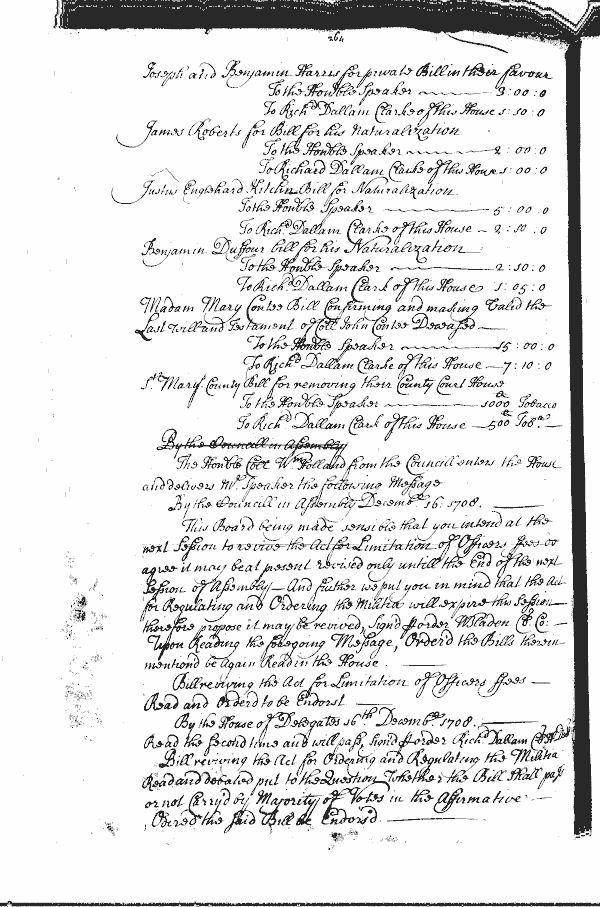 264
Joseph and Benjamin Harris for private Bill in their favour
To the Honoble Speaker 3:00:0
To Richd Dallam Clarke of this House 1:10:0
James Roberts for Bill for his Naturalization
To the Honoble Speaker 2:00:0
To Richard Dallam Clarke of this House 1:00:0
Justus Englehard Kitchin Bill for Naturalization
To the Honble Speaker 5:00:0
To Richd Dallam Clarke of this House 2:10:0
Benjamin Duffour bill for his Naturalization
To the Honble Speaker 2:10:0
To Richd Dallam Clark of this House 1:05:0
Madam Mary Contee Bill Confirming and making Valid the
Last will and Testament of Coll John Contee Deceased
To the Honble Speaker 15:00:0
To Richd Dallam Clarke of this House 7:10:0
St Marys County Bill for removing their County Court House
To the Honble Speaker 1000 Tobacco
To Richd Dallam Clark of this House 500 Tobco
By the Councill in Assembly
The Honble Coll Wm Holland from the Council enters the House
and delivers Mr Speaker the following Message
By the Councill in Assembly Decembr 16: 1708.
This Board being made sensible that you intend at the
next Session to revive the Act for Limitation of Officers ffees do
agree it may be at present revised only untill the End of the next
Session of Assembly - And further we put you in mind that the Act
for Regulating and Ordering the Militia will expire this Session
therefore propose it may be revived, Signd p order W Bladen Cl: Co:
Upon Reading the foregoing Message, Orderd the Bills therein
mentiond be again Read in the House.
Bill reviving the Act for Limitation of Officers ffees
Read and Orderd to be Endorst
By the House of Delegates 16th Decembr 1708.
Read the second time and will pass, signd p order Richd Dallam
Bill reviving the Act for Ordering and Regulating the Militia
Read and debated put to the Question Whether the Bill Shall pass
or not Carryd by Majority of Votes in the Affirmative
Orderd the said Bill be Endorsd